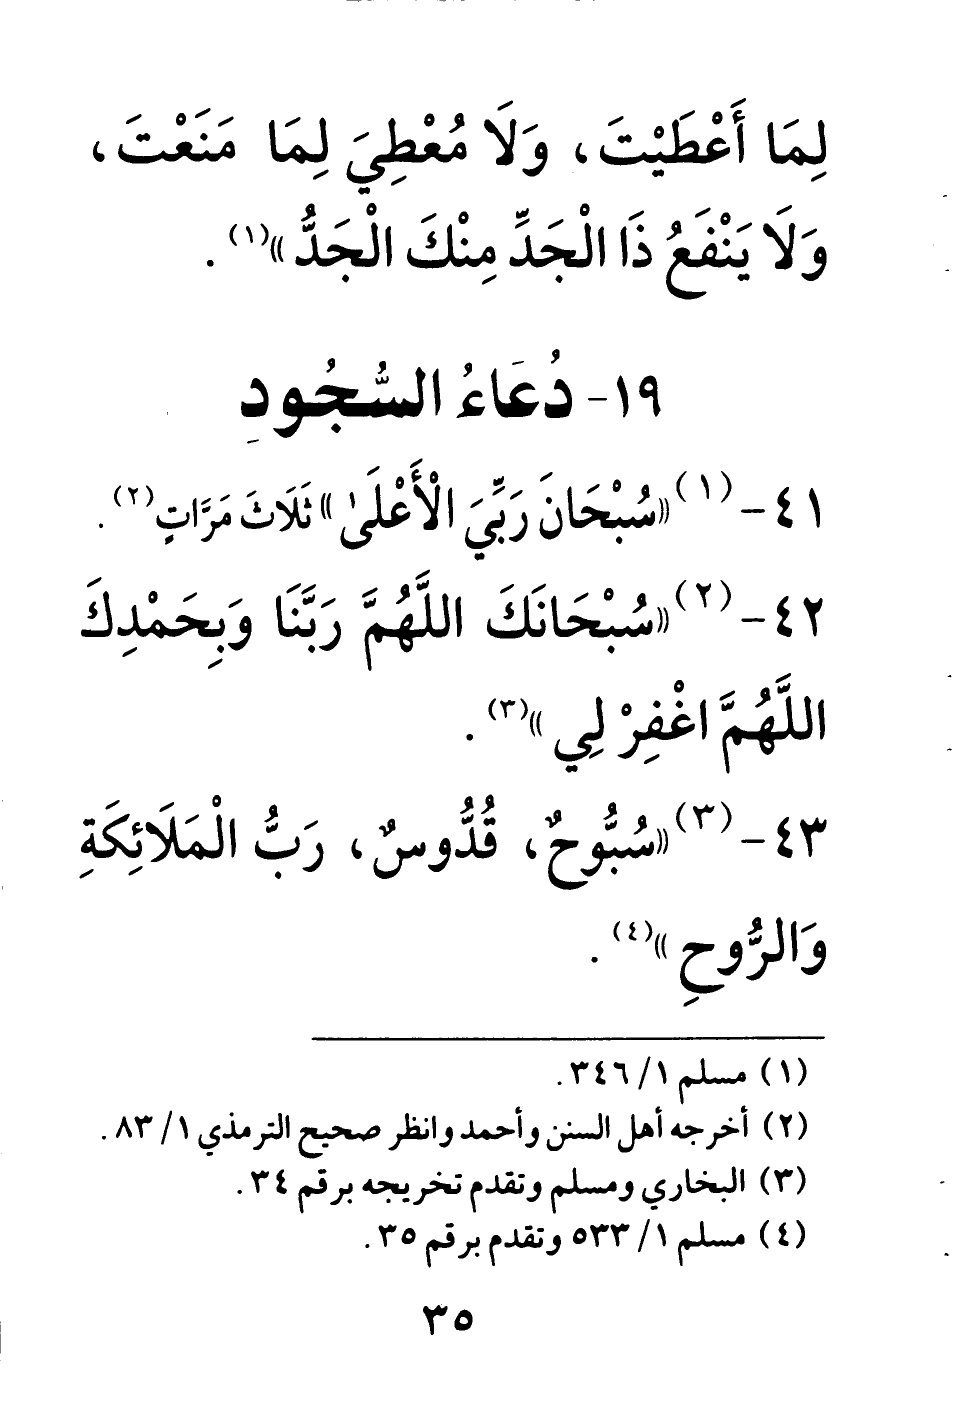 لِمَا أَعْطَيْتَ، وَلَا مُعْطِيَ لِمَا مَنَعْتَ،
وَلَا يَنْفَعُ ذَا الْجَدِّ مِنْكَ الْجَدُّ»(١).
١٩- دُعَاءُ السُّجُودِ
٤١-(١)«سُبْحَانَ رَبِّيَ الْأَعْلَىٰ» ثَلَاثَ مَرَّاتٍ(٢).
٤٢-(٢)«سُبْحَانَكَ اللَّهُمَّ رَبَّنَا وَبِحَمْدِكَ
اللَّهُمَّ اغْفِرْ لِي»(٣).
٤٣-(٣)«سُبُّوحٌ، قُدُّوسٌ، رَبُّ الْمَلَائِكَةِ
وَالرُّوحِ»(٤).
(١) مسلم ١/ ٣٤٦.
(٢) أخرجه أهل السنن وأحمد وانظر صحيح الترمذي ١/ ٨٣.
(٣) البخاري ومسلم وتقدم تخريجه برقم ٣٤.
(٤) مسلم ١/ ٥٣٣ وتقدم برقم ٣٥.
٣٥